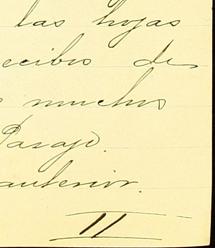 las hojas
recibos de
muchos
Pasaje.
anterior.
II